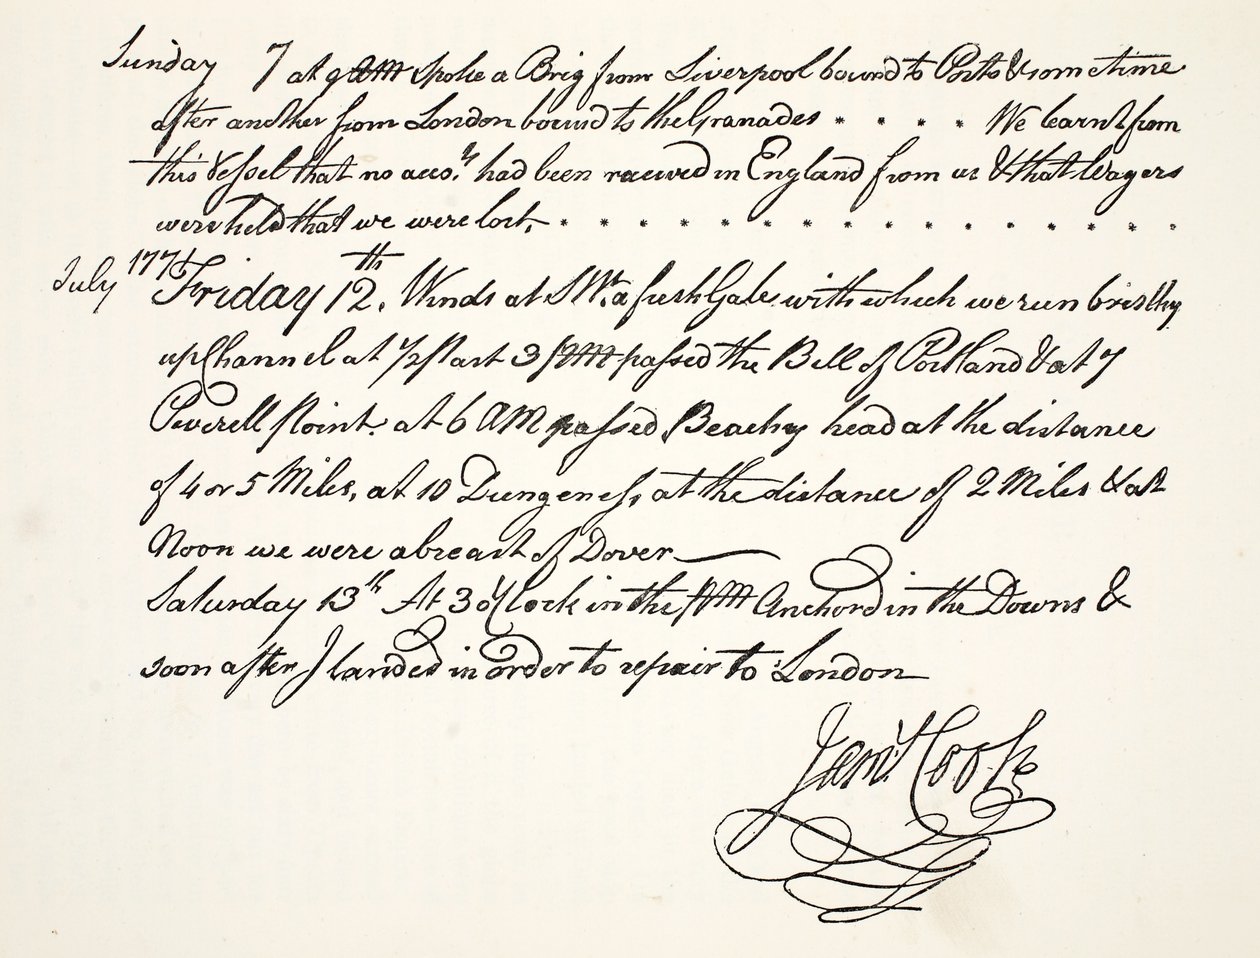 Sunday 7 at 9 AM spoke a Brig from Liverpool bound to Porto & some time
after another from London bound to the Granades * * * * We learnt from
this Vessel that no acco.ts had been received in England from us & that Wagers
were held that we were lost. * * * * * * * * * * * * * * * *
July 1771 Friday 12th. Winds at SWt. a fresh Gale with which we run briskly
up Channel at 1/2 past 3 PM passed the Bill of Portland & at 7
Peverell Point. at 6 AM passed Beachy head at the distance
of 4 or 5 Miles, at 10 Dungeness, at the distance of 2 Miles & at
Noon we were abreast of Dover
Saturday 13th At 3 oClock in the PM Anchord in the Downs &
soon after I landed in order to repair to London
Jams. Cook